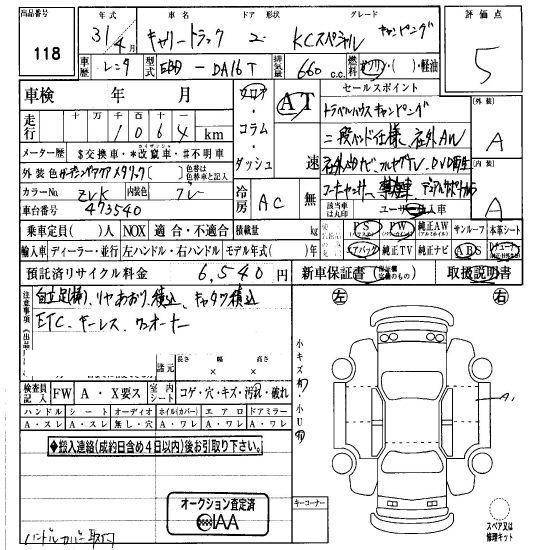 出品番号 118
年式 31/4月
車名 キャリートラック
ドア 形状 2
グレード KCスペシャル キャンピング
評価点 5
車歴 レンタ
型式 EBD - DA16T
排気量 660 c.c.
燃料 ガソリン・( )・軽油
車検 年 月
走行 十 万 千 百 十 一
1 0 6 4 km
メーター歴 $交換車・*改竄車・#不明車
外装色 ガーデニングアクアメタリック( )
色替は色替車と記入
カラーNo. ZVK 内装色 グレー
車台番号 473540
フロア・コラム・ダッシュ
AT 速
冷房 AC 無
セールスポイント
トラベルハウス キャンピング
二段ベンド仕様、社外AW
社外ナビ、フルセグTV、DVD再生
該当車は丸印 ユーザー買 法人車
外装 A
内装 A
乗車定員( )人 NOX 適合・不適合 積載量 kg
PS PW 純正AW サンルーフ 本革シート
輸入車 ディーラー・並行 左ハンドル・右ハンドル モデル年式( )年
エアバッグ 純正TV 純正ナビ ABS
預託済リサイクル料金 6,540 円
新車保証書 取扱説明書
注意事項(出品店
ETC、キーレス、ワンオーナー
諸元 長さ × 幅 × 高さ
検査員記入 FW A・X要ス 室内シート コゲ・穴・キズ・汚れ・破れ
ハンドル シート オーディオ ホイル(カバー) エアロ ドアミラー
A・スレ A・スレ 無し・穴 A・ワレ A・ワレ A・ワレ
◆搬入連絡(成約日含め4日以内)後お引取り下さい。◆
オークション査定済
AIAA
左 右
小キズ有・小U有
A1
キーコーナー
スペア又は修理キット
ハンドルカバー取付